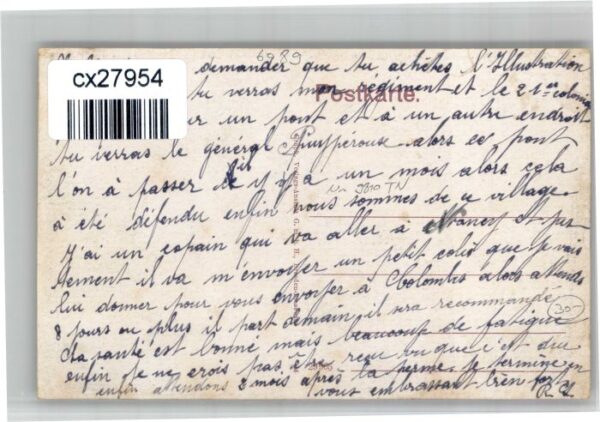 6989
cx27954
Postkarte.
demander que tu achètes l'Illustration
tu verras mon régiment et le 21ème colonial
sur un pont et à un autre endroit
tu verras le général Puypéroux alors ce pont
l'on à passer il y a un mois alors cela
à été défendu enfin nous sommes de ce village
J'ai un copain qui va aller à Nancy et jus
tement il va m'envoyer un petit colis que je vais
lui donner pour vous envoyer à Colombes alors attends
8 jours ou plus il part demain, il sera recommandé
Ma santé est bonne mais beaucoup de fatigue
enfin je ne crois pas être reçu vu que c'est dur
enfin attendons 2 mois après la ferme. Je termine en
vous embrassant bien fort
R. Y.
30